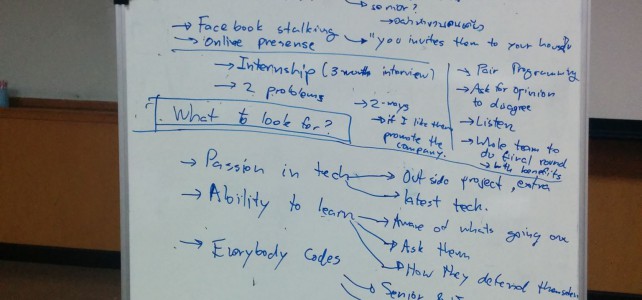 → Facebook stalking
→ Online presense
→ "you invites them to your house
→ Internship (3 month interview)
→ 2 problems
→ 2-ways
→ if I like them
promote the
company.
→ Pair Programming
→ Ask for opinion
to disagree
→ Listen
→ Whole team to
do final round
→ with benefits
What to look for?
→ Passion in tech
→ Out side project, extra
→ latest tech.
→ Ability to learn
→ Aware of whats going on
→ Ask them
→ How they defend themselves
→ Everybody Codes
Senior &